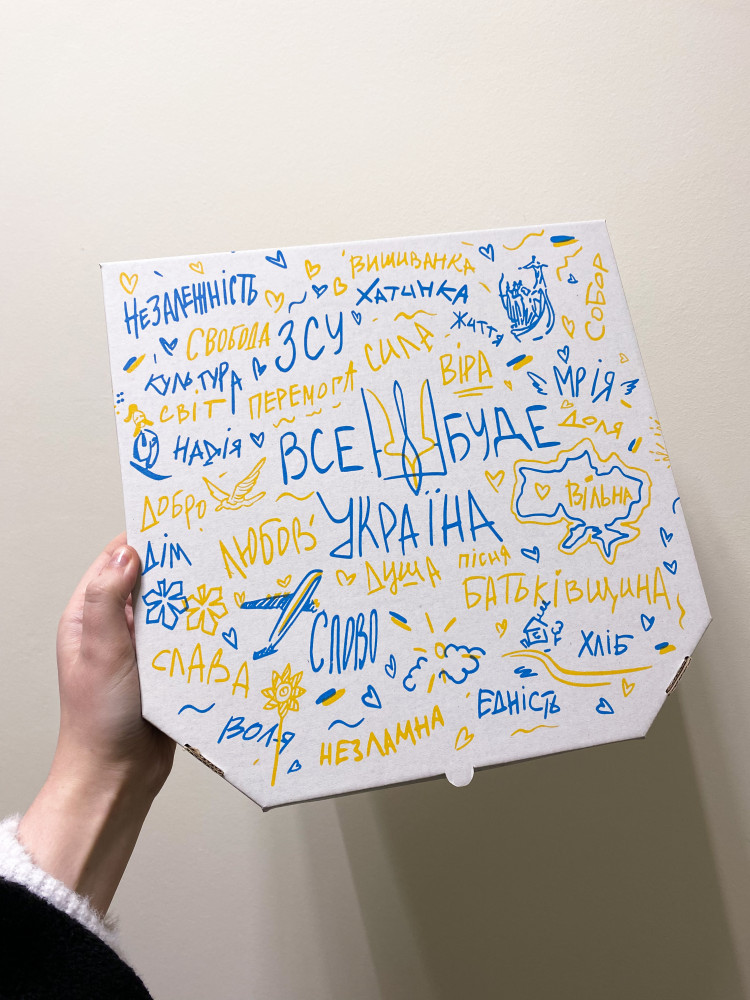 ВИШИВАНКА
НЕЗАЛЕЖНІСТЬ
ХАТИНКА
СОБОР
СВОБОДА
ЗСУ
ЖИТТЯ
СИЛА
КУЛЬТУРА
ВІРА
МРІЯ
СВІТ
ПЕРЕМОГА
ДОЛЯ
НАДІЯ
ВСЕ БУДЕ
УКРАЇНА
ВІЛЬНА
ДОБРО
ЛЮБОВ'
ДІМ
ДУША
ПІСНЯ
БАТЬКІВЩИНА
СЛОВО
ХЛІБ
СЛАВА
ЕДНІСТЬ
ВОЛЯ
НЕЗЛАМНА